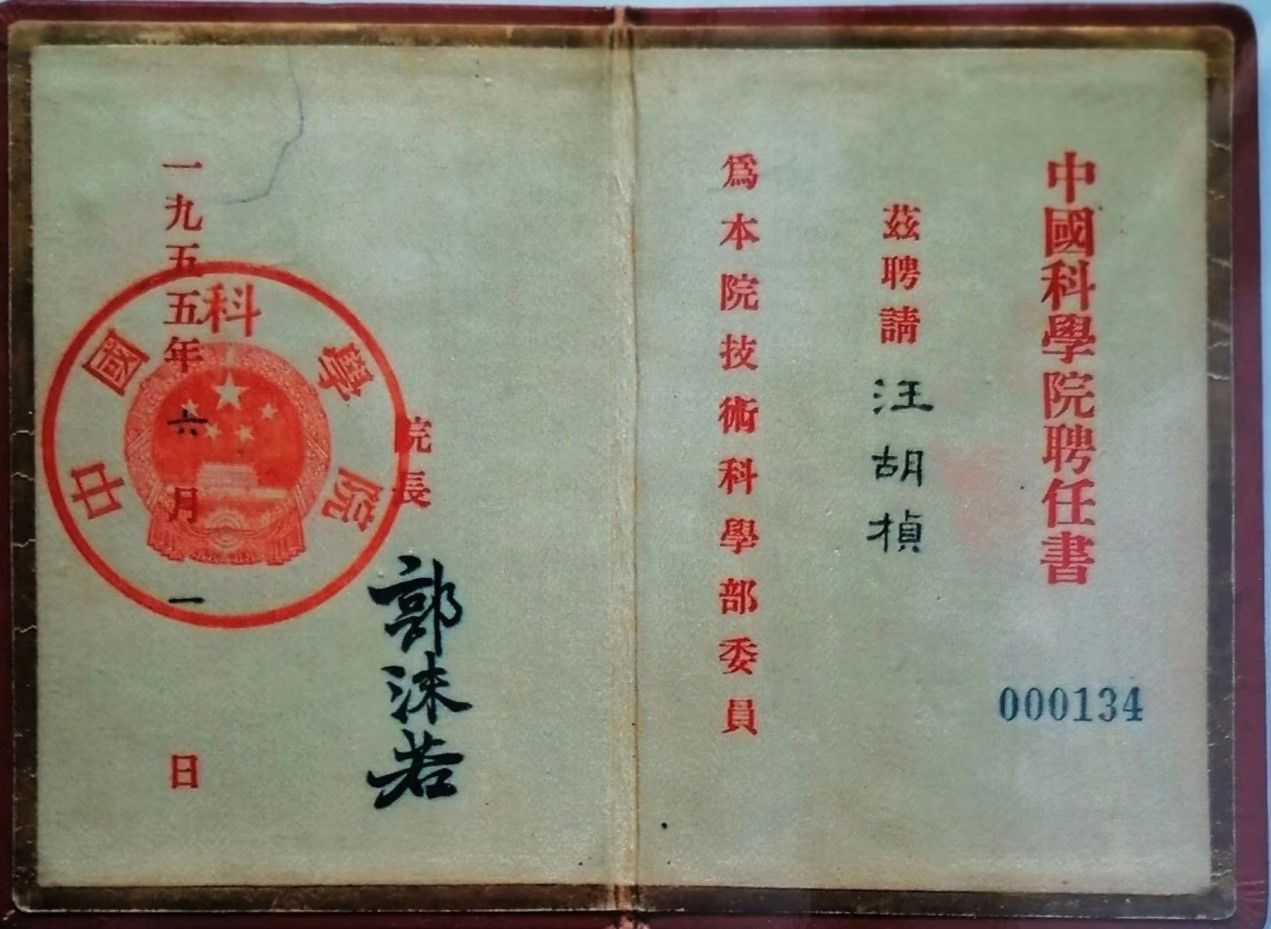 中國科學院聘任書
000134
茲聘請 汪胡楨
爲本院技術科學部委員
院長 郭沫若
一九五五年六月一日
中國科學院